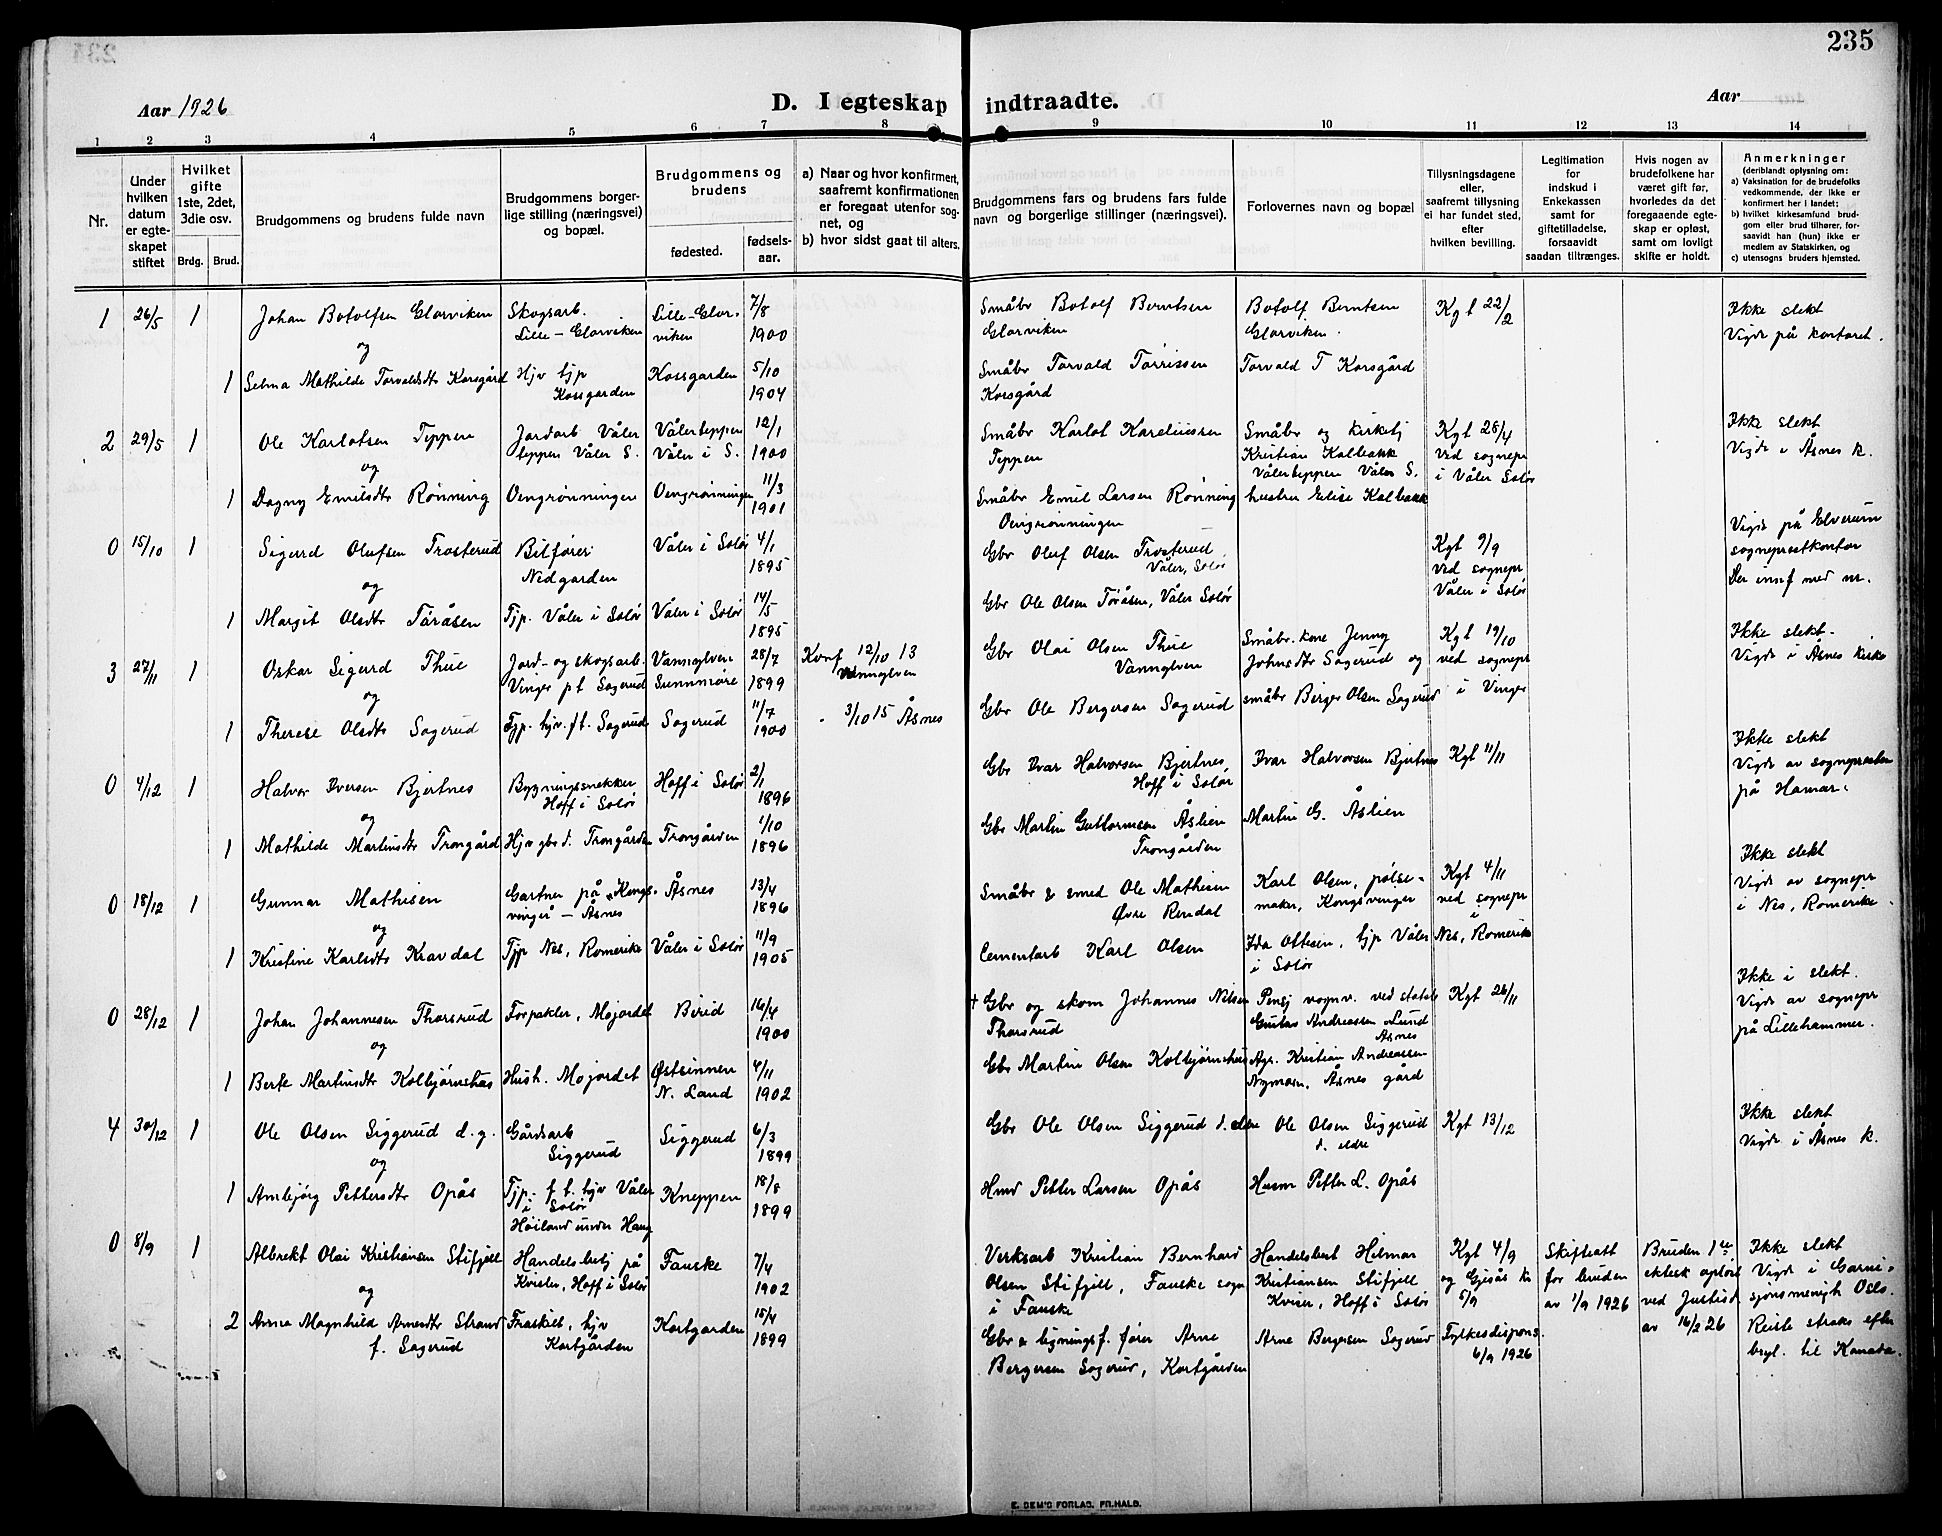 235
Aar 1926
D. I egteskap indtraadte.
Aar
1 2 3 4 5 6 7 8 9 10 11 12 13 14
Nr.
Under hvilken datum er egteskapet stiftet
Hvilket gifte 1ste, 2det, 3die osv.
Brdg. Brud.
Brudgommens og brudens fulde navn
Brudgommens borgerlige stilling (næringsvei) og bopæl.
Brudgommens og brudens
fødested.
fødselsaar.
a) Naar og hvor konfirmert, saafremt konfirmationen er foregaat utenfor sognet, og
b) hvor sidst gaat til alters.
Brudgommens fars og brudens fars fulde navn og borgerlige stillinger (næringsvei).
Forlovernes navn og bopæl
Tillysningsdagene eller, saafremt tillysning ei har fundet sted, efter hvilken bevilling.
Legitimation for indskud i Enkekassen samt for giftetilladelse, forsaavidt saadan tiltrænges.
Hvis nogen av brudefolkene har været gift før, hvorledes da det foregaaende egteskap er opløst, samt om lovligt skifte er holdt.
Anmerkninger
(deriblandt oplysning om:
a) Vaksination for de brudefolks vedkommende, der ikke er konfirmert her i landet;
b) hvilket kirkesamfund brudgom eller brud tilhører, forsaavidt han (hun) ikke er medlem av Statskirken, og
c) utensogns bruders hjemsted.
1 26/5 1 Johan Botolfsen Glorviken Skogsarb. Lille-Glorviken Lille-Glorviken 7/8 1900 Småbr Botolf Berntsen Glorviken Botolf Berntsen Glorviken. Kgt 22/2 Ikke slekt Vigde på kontoret.
og
1 Selma Mathilde Torvaldsdtr Korsgård Hjv hjp Kossgarden Kossgarden 5/10 1904 Småbr Torvald Torrissen Korsgård Torvald T Korsgård
2 29/5 1 Ole Karlotsen Teppen Jordarb Våler teppen Våler S. Vålerteppen Våler i S. 12/1 1900 Småbr Karlot Kareliussen Teppen Småbr og kirketj Kristian Kalbakk Vålerteppen Våler S. Kgt 28/4 ved sognepr i Våler Solør Ikke slekt Vigde i Åsnes k.
og
1 Dagny Emilsdtr Rønning Oengrønningen Oengrønningen 11/3 1901 Småbr Emil Larsen Rønning Oengrønningen hustru Elise Kalbakk
0 15/10 1 Sigurd Olufsen Trosterud Bilfører Nedgarden Våler i Solør 4/1 1895 Gbr Oluf Olsen Trosterud, Våler, Solør Kgt 9/9 ved sognepr Våler i Solør Vigde på Elverum sogneprestkontor Der innf med nr.
og
1 Margit Olsdtr Toråsen Tjp. Våler i Solør Våler i Solør 14/5 1895 Gbr Ole Olsen Toråsen, Våler Solør
3 27/11 1 Oskar Sigurd Thue Jord- og skogsarb. Vinger pt Sogerud Vannylven Sunnmøre 28/7 1899 Konf 12/10 13 Vannylven Gbr Olai Olsen Thue Vannylven Småbr. kone Jenny Johnsdtr Sogerud og Kgt 19/10 ved sognepr i Vinger Ikke slekt- Vigde i Åsnes kirke
og
1 Therese Olsdtr Sogerud Tjp. hjv. ft. Sogerud Sogerud 11/7 1900 - 3/10 15 Åsnes Gbr Ole Bergersen Sogerud småbr Berger Olsen Sogerud
0 4/12 1 Halvor Iversen Bjertnes Bygningssnekker Hoff i Solør Hoff i Solør 2/1 1896 Gbr Ivar Halvorsen Bjertnes, Hoff i Solør Ivar Halvorsen Bjertnes Kgt 11/11 Ikke slekt Vigde av sognepresten på Hamar.
og
1 Mathilde Martinsdtr Trongård Hjv gbrd. Trongården Trongården 1/10 1896 Gbr Martin Guttormsen Åslien Trongården Martin G. Åslien
0 18/12 1 Gunnar Mathisen Gartner på "Kongsvinger" - Åsnes Åsnes 13/4 1896 Småbr & smed Ole Mathisen Øvre Rendal Karl Olsen, pølsemaker, Kongsvinger Kgt 4/11 ved sognepr i Nes, Romerike Ikke slekt Vigde av sognepr i Nes, Romerike.
og
1 Kristine Karlsdtr Kravdal Tjp Nes, Romerike Våler i Solør 11/9 1905 Cementarb Karl Olsen Ida Ottesen, hjp Våler i Solør
0 28/12 1 Johan Johannesen Thorsrud Forpakter, Mojordet Birid 14/4 1900 + Gbr og skom Johannes Nilsen Thorsrud Pensj vognv. ved statsb Gustav Andreassen Lund Åsnes Kgt 26/11 Ikke i slekt. Vigde av sognepr på Lillehammer.
og
1 Berte Martinsdtr Kolbjørnshus Hush. Mojordet Østsinnen N. Land 4/11 1902 Gbr Martin Olsen Kolbjørnshus Agr. Kristian Andreassen Nymoen, Åsnes gård
4 30/12 1 Ole Olsen Siggerud d.y. Gårdsarb Siggerud Siggerud 6/3 1899 Gbr Ole Olsen Siggerud d. eldre Ole Olsen Siggerud d. eldre Kgt 13/12 Ikke slekt Vigde i Åsnes k.
og
1 Ambjørg Pettersdtr Opås Tjp- f. t. hjv Våler i Solør Kneppen 18/8 1899 Hmd Petter Larsen Opås Husm Petter L. Opås
0 8/9 1 Albrekt Olai Kristiansen Stifjell Høiland under Haug Handelsbetj på Kvisler, Hoff i Solør Fauske 7/4 1902 Verksarb Kristian Bernhard Olsen Stifjell, Fauske sogn i Fauske Handelsbest Hilmar Kristiansen Stifjell Kvisler, Hoff i Solør Kgt 4/9 og Gjesås k 5/9 Skifteatt for bruden av 1/9 1926 Bruden 1ste ektesk opløst ved Justisd av 16/2 26 Ikke slekt Vigde i Garnisonsmenigh Oslo. Reiste straks efter bryl. til Kanada.
og
2 Anna Magnhild Arnesdtr Strand f. Sogerud Fraskilt, hjv Kortgården Kortgarden 15/4 1899 Gbr & ligningsf. fører Arne Bergersen Sogerud, Kortgården Arne Bergersen Sogerud Fylkesdispens. 6/9 1926
E. SEM'S FORLAG, FR.HALD.